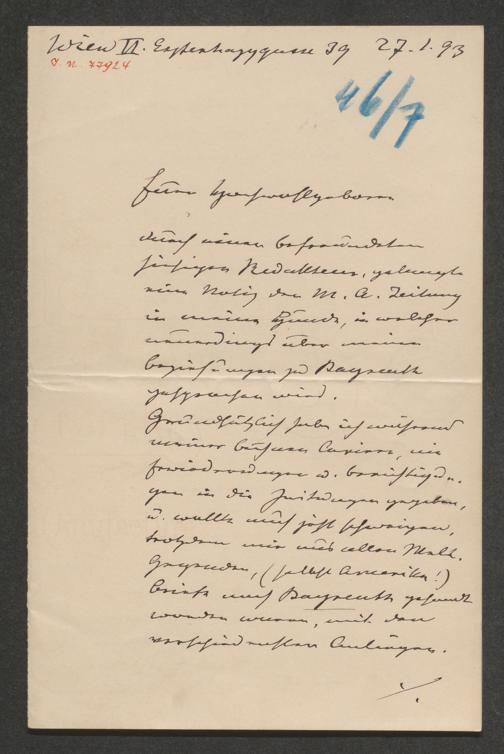 Wien VI. Esterhazygasse 39 27.1.93
J. N. 77924
46/7
Euer Hochwohlgeboren
durch einen befreundeten
hiesigen Redakteur, gelangte
eine Notiz der M. A. Zeitung
in meine Hände, in welcher
neuerdings über meine
Beziehungen zu Bayreuth
gesprochen wird.
Grundsätzlich habe ich während
meiner Bühnen Cariere, nie
Erwiederungen u. berichtigun-
gen in die Zeitungen gegeben,
u. wollte auch jetzt schweigen,
trotzdem mir aus allen Welt-
Gegenden, (selbst Amerika!)
briefe nach Bayreuth gesandt
worden waren, mit den
verschiedensten Anliegen.
./.